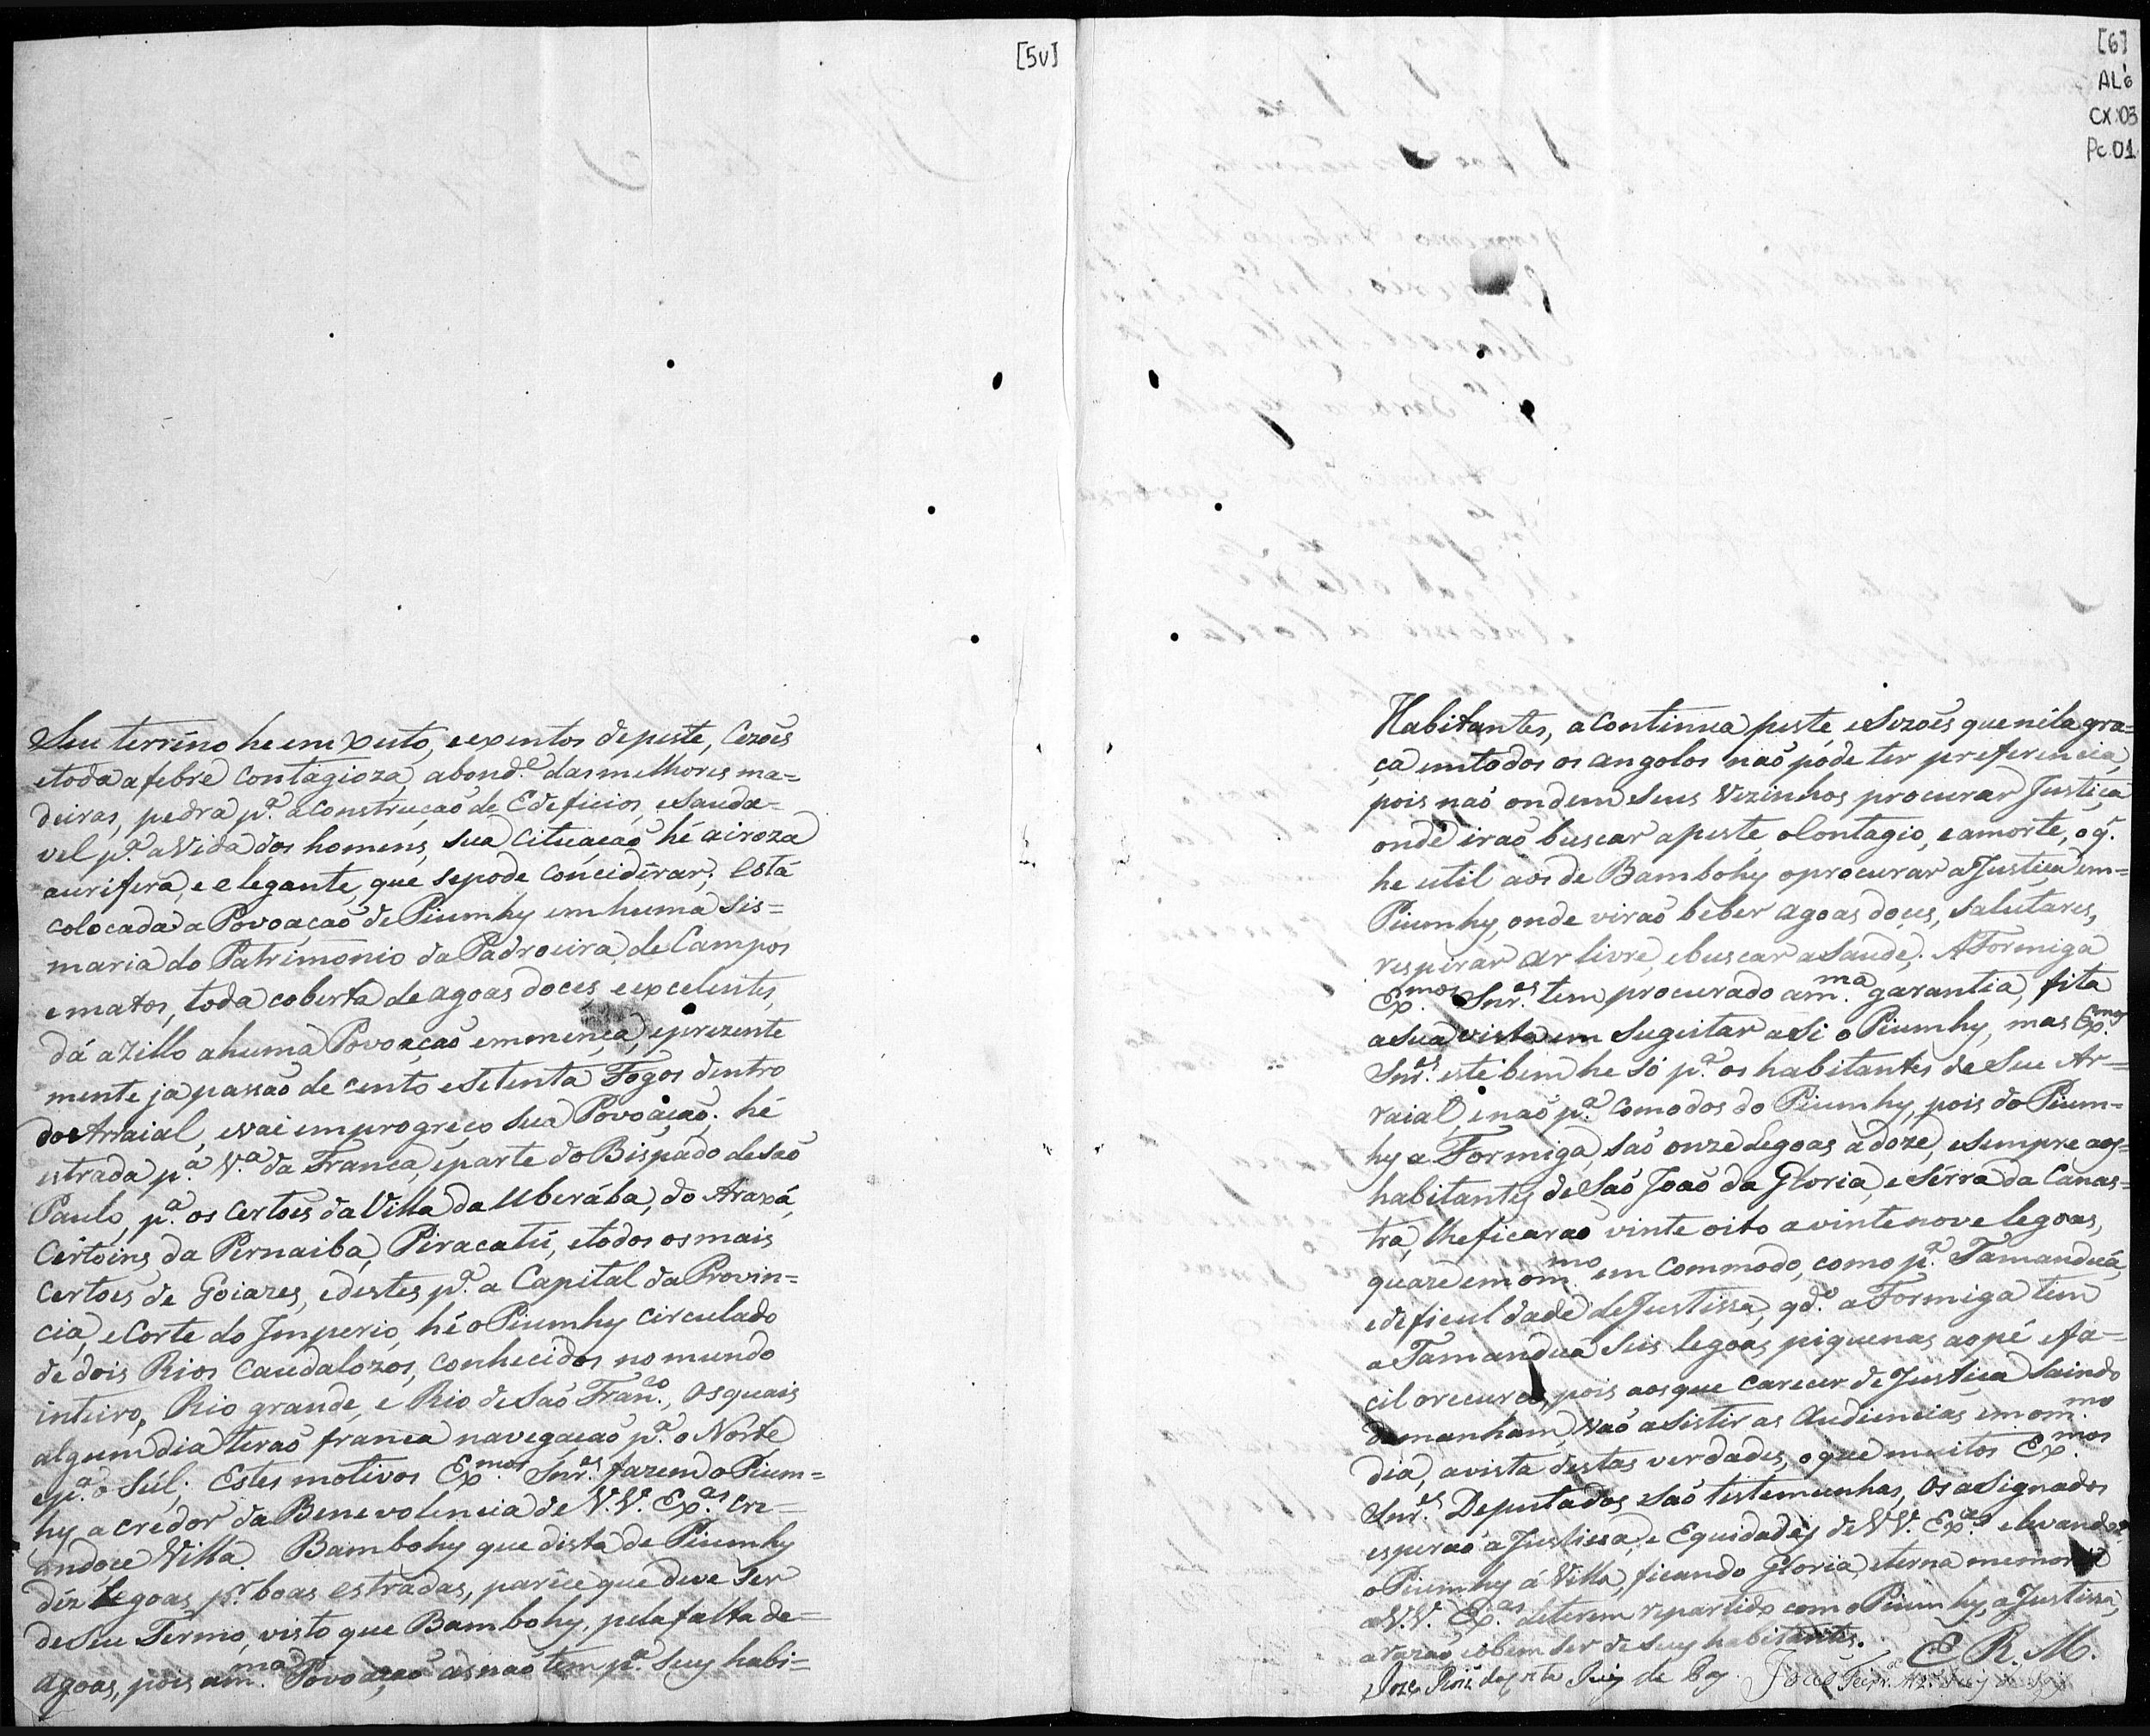 [5v]
Seu terreno he emxuto, e exentos de peste, Cezoẽs
e toda a febre Contagioza, abond.e das melhores ma=
deiras, pedra p.a a Construçaõ de Edeficios, e Sauda=
vel p.a a Vida dos homens, sua Cituaçaõ hé airoza
aurifera, e elegante, que se pode Concidirar; Está
Colocada a Povoaçaõ de Piumhy em huma Sis=
maria do Patrimonio da Padroeira, de Campos
e matos, toda coberta de agoas doces, e excelentes,
dá azillo a huma Povoaçaõ emmença, e prezente
mente ja passaõ de cento e Setenta Fogos dentro
do Arraial, e vai em progréço sua Povoaçaõ; hé
estrada p.a V.a da Franca, e parte do Bispado de Saõ
Paulo, p.a os Certoẽs da Villa da Uberába, do Araxá,
Certoins da Pernaiba, Piracatú, e todos os mais
Certoẽs de Goiazes, e destes p.a a Capital da Provin=
cia, e Corte do Imperio, hé o Piumhy Circulado
de dois Rios Caudalózos, conhecidos no mundo
inteiro, Rio grande, e Rio de Saõ Fran.co, Os quais
algum dia teraõ franca navegaçaõ p.a o Norte
e p.a o Súl; Estes motivos Ex.mos Snr.es fazem o Pium=
hy a crédor da Benevolencia de V.V. Ex.as cre=
andoce Villa. Bambohy que dista de Piumhy
déz legoas, p.r boas estradas, paréce que deve Ser
de Seu Termo, visto que Bambohy, pela falta de=
agoas, pois a m.ma Povoaçaõ as naõ tem p.a Suy habi=
[6]
AL6
CX:03
Pc.01
Habitantes, a Continua peste, e Sezoẽs que nela gra=
ça em todos os angolos naõ póde ter preferencia,
pois naõ ondem Seus Vezinhos procurar Justiça
onde iraõ buscar a peste, o Contagio, e a morte, o q.
he util aos de Bambohy o procurar a Justiça em=
Piumhy, onde viraõ beber agoas doces, Salutares,
respirar ar livre, e buscar a Saude; A Formiga
Ex.mos Snr.es tem procurado a m.ma garantia, fita
a sua vista em Sugeitar a Si o Piumhy, mas Ex.mos
Snr.es este bem he só p.a os habitantes de Seu Ar=
raial, e naõ p.a Comodos do Piumhy, pois do Pium=
hy a Formiga, saõ onze Legoas a doze, e Sempre aos=
habitantes de Saõ Joaõ da Gloria, e Sérra da Canas=
tra, lhe ficaraõ vinte oito a vinte nove legoas,
quaze em o m.mo em Commodo, como p.a Tamanduá,
e deficuldade de Justissa, qd.o a Formiga tem
a Tamanduá Seis legoas piquenas ao pé e fa=
cil o recurço, pois aos que Carecer de Justiça Saindo
de manham, Vaõ a Sistir as Audiencias em o m.mo
dia, a vista destas verdades, o que muitos Ex.mos
Snr.es Deputados, Saõ testemunhas, Os a Signados
esperaõ a Justissa, e Equidades de V.V. Ex.as elevando=
o Piumhy á Villa, ficando Gloria, eterna memoria
a V.V. Ex.as de terem repartido com o Piumhy, a Justissa,
a razaõ e o bem Ser de Suy habitantes.
E. R. M.
Juiz de Paz